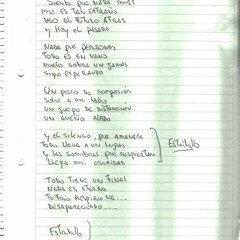 Siento que nada más
más es tan extraño
veo el futuro atrás
y hay el pasado
Nada que perdonar
todo es en vano
vuelo sobre un jamás
sigo esperando
Un poco de compasión
solo a mi lado
un juego de
un sueño alado
y el silencio, que amanece
todo lleva a un lugar
y las sombras que despiertan
llega mi oscuridad
Estribillo
Todo tiene un final
nada es eterno
tu frío respiro me
desapareciendo
Estribillo